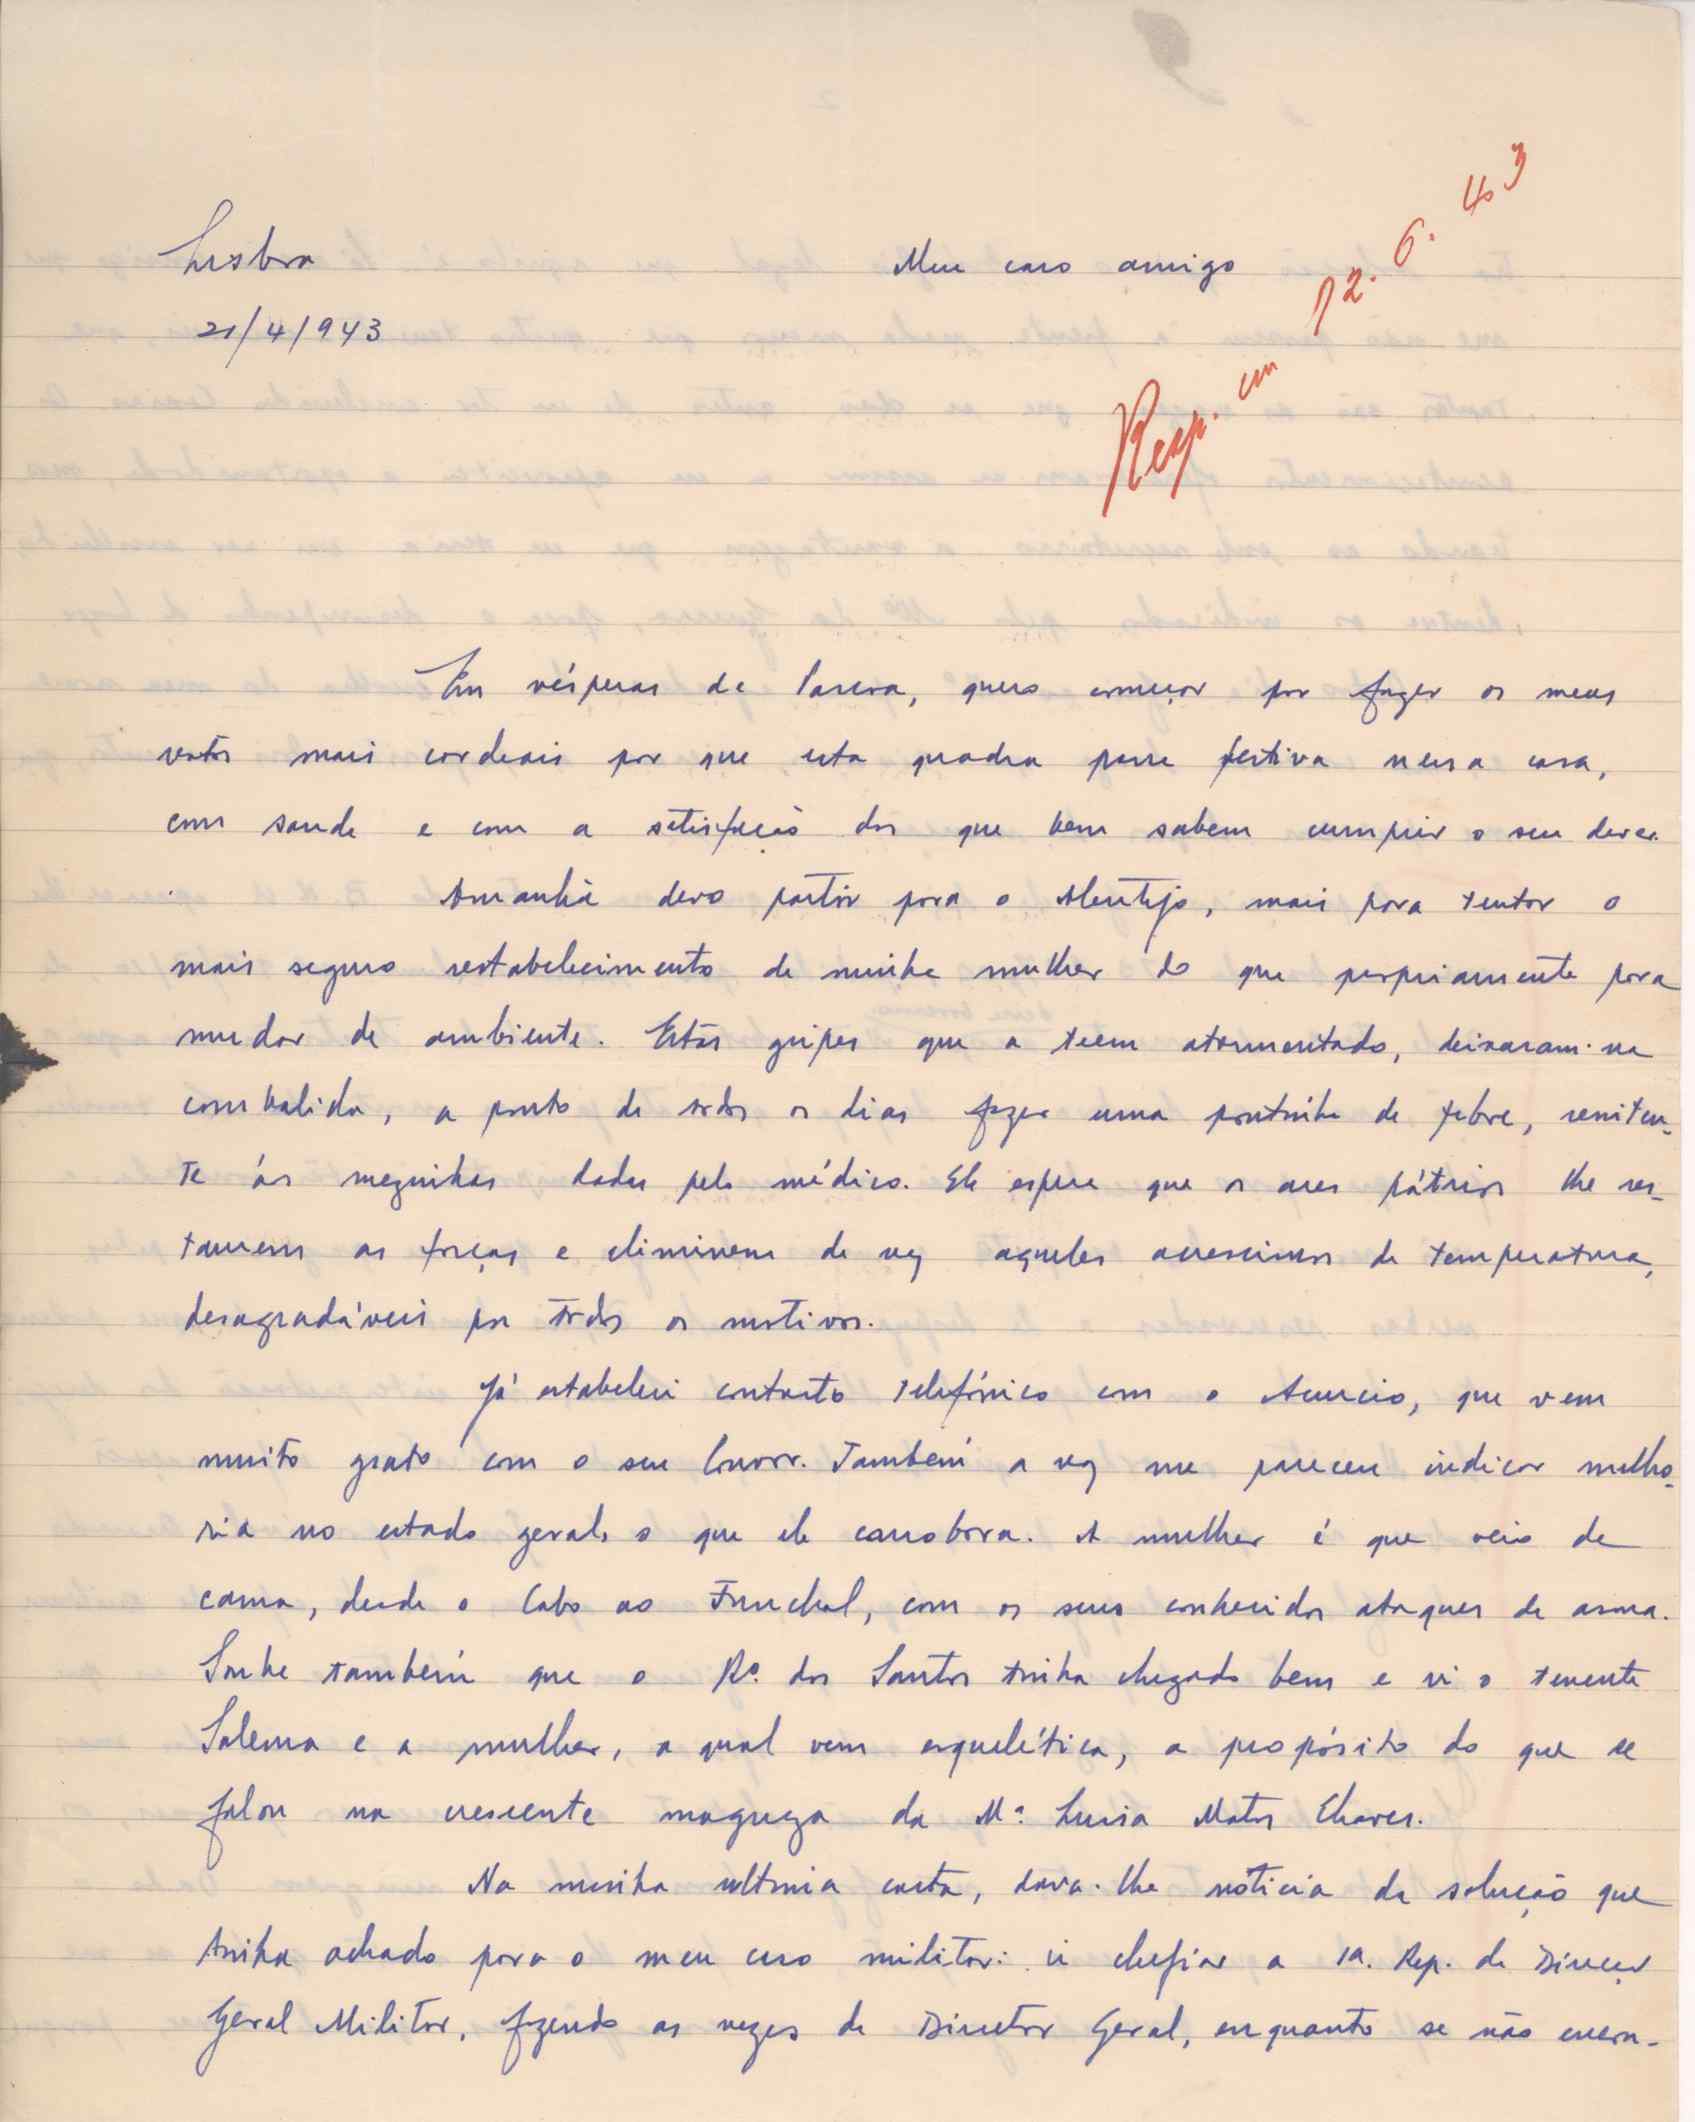 Lisboa
Meu caro amigo
21/4/943
Resp. em 12.6.43
Em vésperas de Pascoa, quero começar por fazer os meus
votos mais cordeais por que esta quadra passe festiva nessa casa,
com saude e com a satisfação dos que bem sabem cumprir o seu dever.
Amanhã devo partir para o Alentejo, mais para tentar o
mais seguro restabelecimento de minha mulher do que propriamente para
mudar de ambiente. Estas gripes que a teem atormentado, deixaram-na
combalida, a ponto de todos os dias fazer uma pontinha de febre, renitен-
te ás mèzinhas dadas pelo médico. Ele espera que os ares pátrios lhe res-
taurem as forças e eliminem de vez aqueles acrescimos de temperatura,
desagradáveis por todos os motivos.
Já estabeleci contacto telefónico com o Acurcio, que vem
muito grato com o seu louvor. Também a voz me pareceu indicar melho-
ria no estado geral, o que ele corrobora. A mulher é que veio de
cama, desde o Cabo ao Funchal, com os seus conhecidos ataques de asma.
Soube também que o Rº. dos Santos tinha chegado bem e vi o tenente
Salema e a mulher, a qual vem esquelética, a propósito do que se
falou na crescente magreza da Mª. Luisa Matos Chaves.
Na minha ultima carta, dava-lhe noticia da solução que
tinha achado para o meu caso militar: ir chefiar a 1ª. Rep. da Direcção
Geral Militar, fazendo as vezes de Diretor Geral, enquanto se não encon-